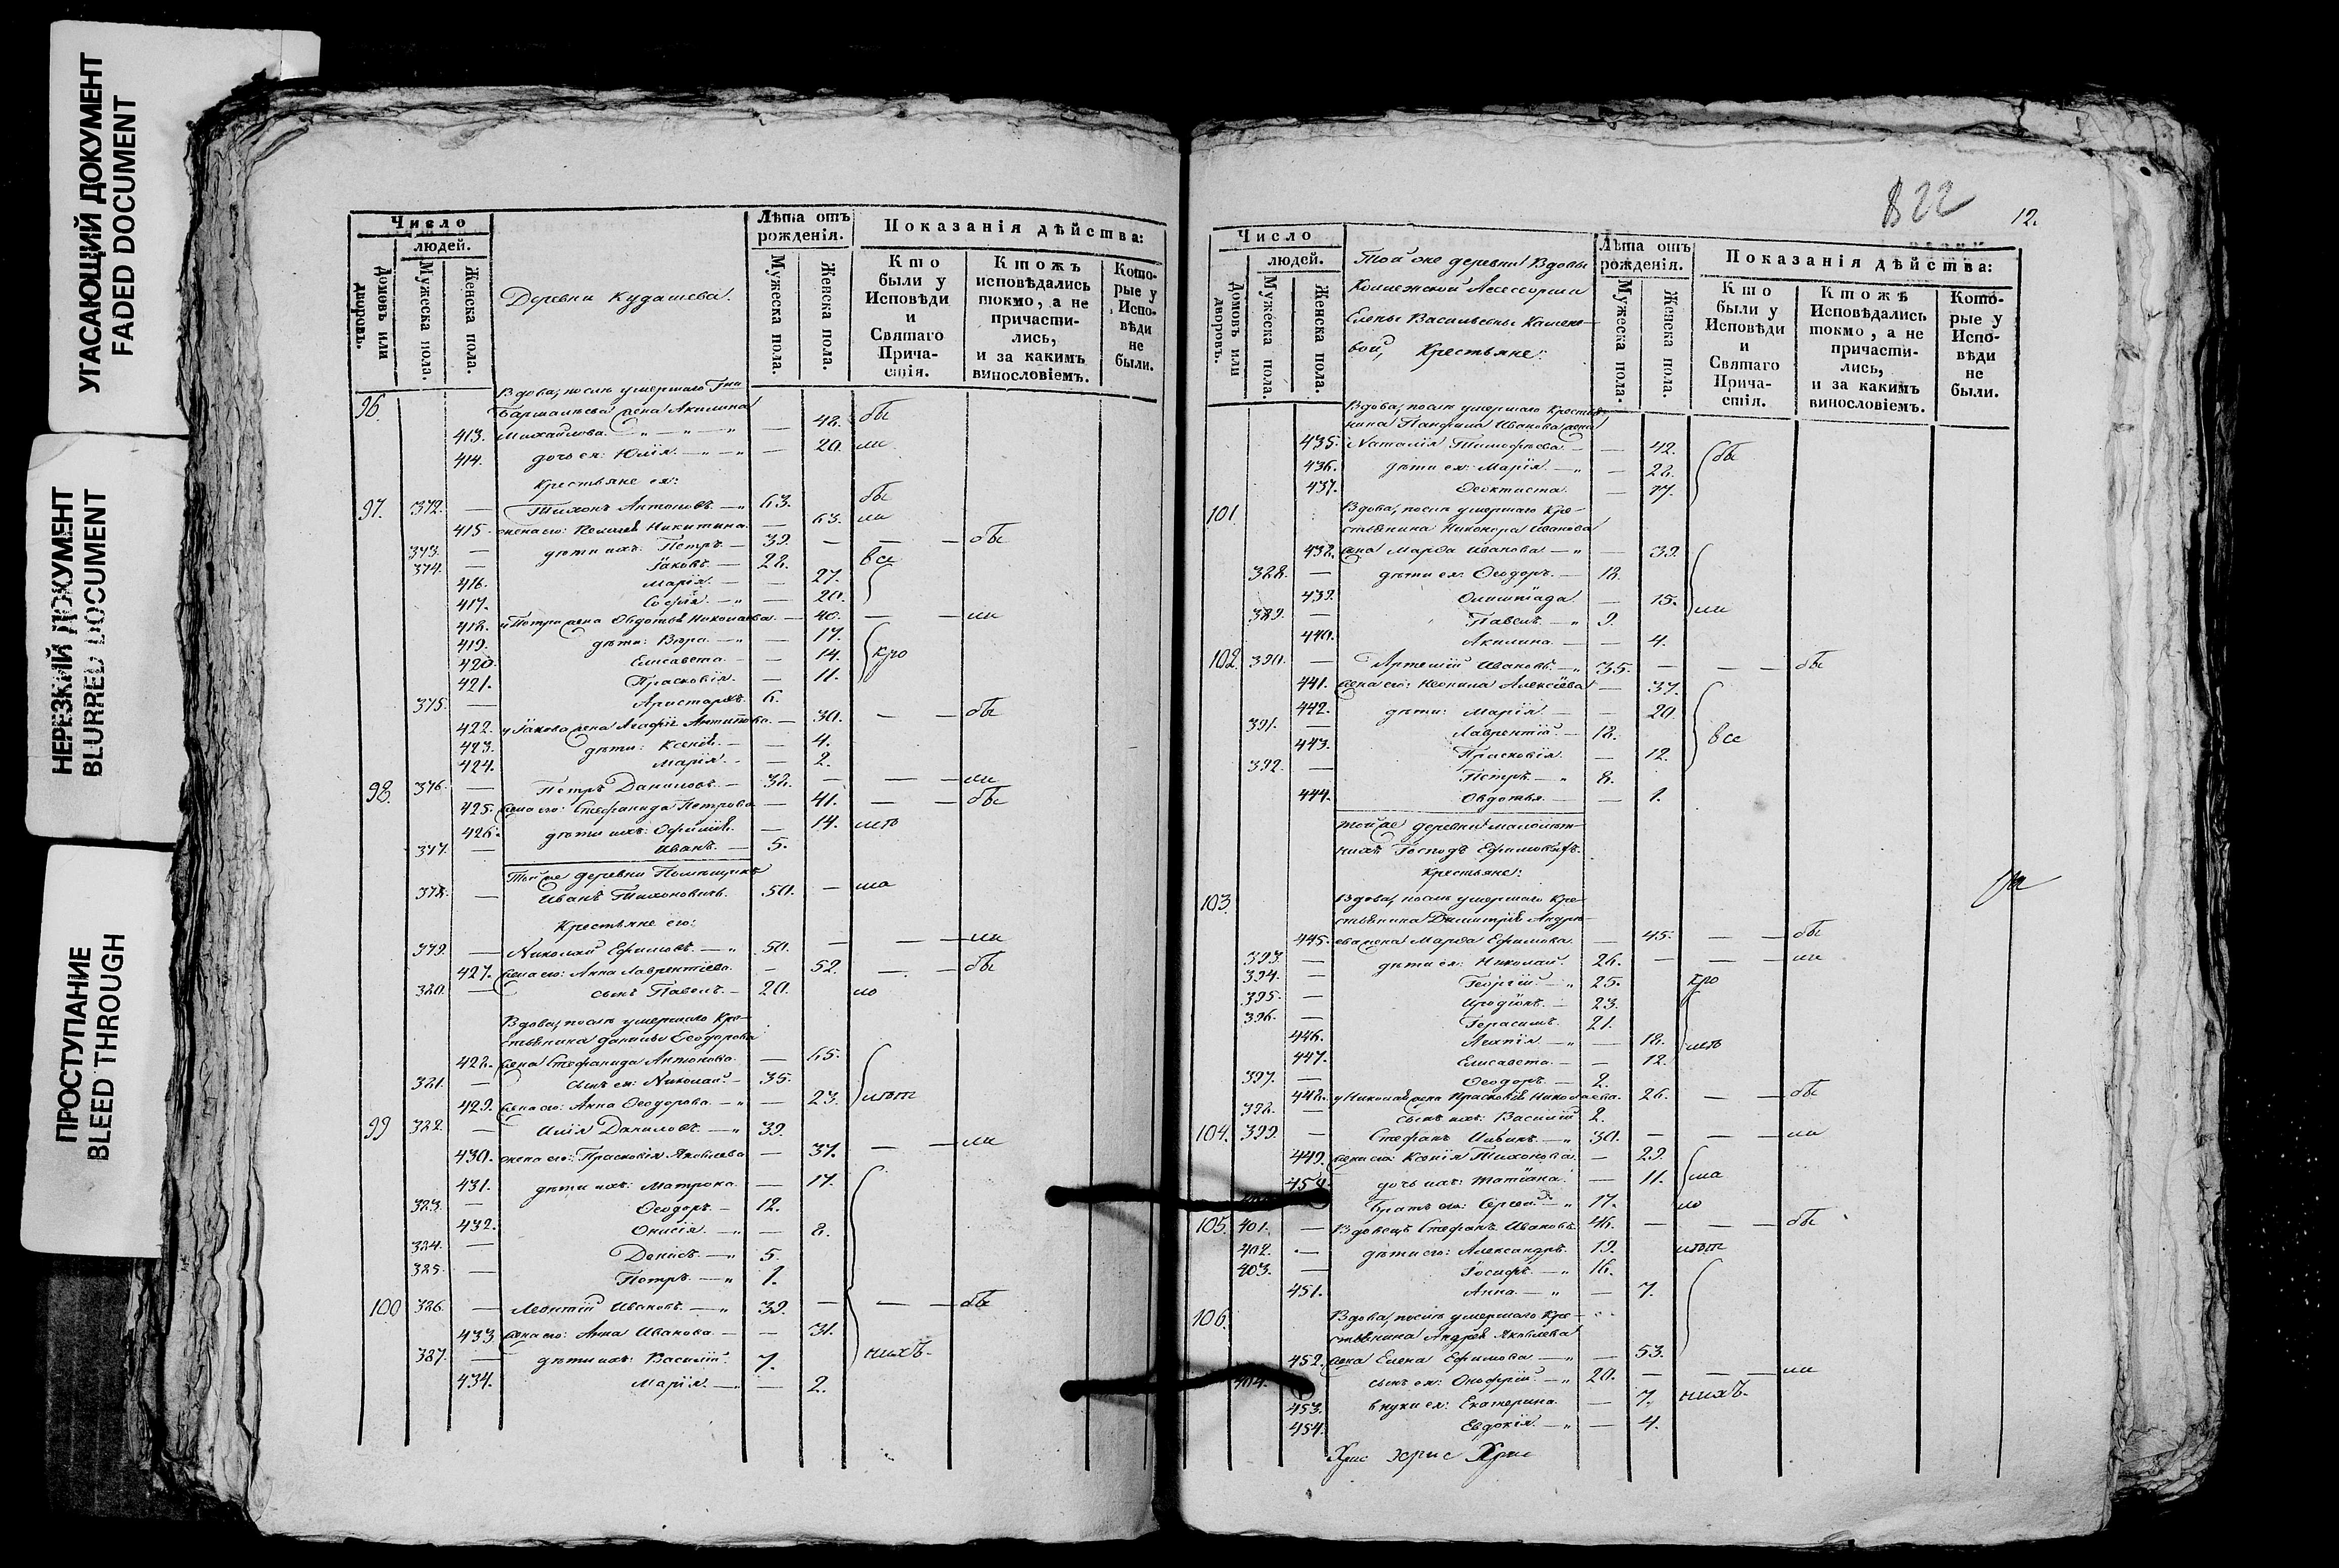 УГАСАЮЩИЙ ДОКУМЕНТ
FADED DOCUMENT
НЕРЕЗКИЙ ДОКУМЕНТ
BLURRED DOCUMENT
ПРОСТУПАНИЕ
BLEED THROUGH
Число
людей.
Домовъ или дворовъ.
Мужеска пола.
Женска пола.
Деревни Кудашева.
Лѣта отъ рожденія.
Мужеска пола.
Женска пола.
Показанія дѣйства:
Кто были у Исповѣди и Святаго Причастія.
Ктожъ исповѣдались токмо, а не причастились, и за какимъ винословіемъ.
Которые у Исповѣди не были.
96. Вдова, послѣ умершаго
жена Акилина
413. Михайлова — 48. бы
414. дочь ея: Юлія — 20. ли
Крестьяне ея:
97. 372. — Тихонъ Антоновъ 63. бы
415. жена его: Пелагея Никитина — 63. ли
373. — дѣти ихъ: Петръ 39. — — — бы
374. — Іаковъ 28. все
416. Марія — 27.
417. Софія — 20.
418. у Петра жена Овдотья Николаева — 40. — — ли
419. дѣти: Вѣра — 17.
420. Елисавета — 14. кро
421. Прасковія — 11.
375. — Аристархъ 6.
422. у Іакова жена Агафія Антипова — 30. — — бы
423. дѣти: Ксенія — 4.
424. Марія — 2.
98. 376. — Петръ Даниловъ 38. — — — ли
425. жена его: Стефанида Петрова — 41. — — бы
426. дѣти ихъ: Офимія — 14. мѣ
377. — Иванъ 5.
Той же деревни Помѣщикъ
378. — Иванъ Тихоновичъ 50. — ша
Крестьяне его:
379. — Николай Ефимовъ 50. — — — ли
427. жена его: Анна Лаврентіева — 52. — — бы
380. — сынъ Павелъ 20. ло
Вдова, послѣ умершаго Кре-
стьянина Данилы Ѳеодорова
428. жена Стефанида Антонова — 65.
381. — сынъ ея: Николай 35.
429. жена его: Анна Ѳеодорова — 23.
99 382. — Илія Даниловъ 39.
430. жена его: Прасковія Яковлева — 37. — — ли
431. дѣти ихъ: Матрона — 17.
383. — Ѳеодоръ 12.
432. Онисія — 8.
384. — Денисъ 5.
385. — Петръ 1.
100 386. — Леонтій Ивановъ 39. — — — бы
433. жена его: Анна Иванова — 31.
387. — дѣти ихъ: Василій 7. нихъ.
434. Марія — 2.
822
12.
Число
людей.
Домовъ или дворовъ.
Мужеска пола.
Женска пола.
Той же деревни Вдовы
Коллежской Ассессорши
Елены Васильевны
Крестьяне:
Лѣта отъ рожденія.
Мужеска пола.
Женска пола.
Показанія дѣйства:
Кто были у Исповѣди и Святаго Причастія.
Ктожъ Исповѣдались токмо, а не причастились, и за какимъ винословіемъ.
Которые у Исповѣди не были.
Вдова, послѣ умершаго Крестья-
нина Панфила Иванова жена
435. Наталія Тимофѣева — 42. бы
436. дѣти ея: Марія — 28.
437. Ѳеоктиста — 17.
101. Вдова, послѣ умершаго Кре-
стьянина Никонора Иванова
438. жена Марѳа Иванова — 39.
388. — дѣти ея: Ѳеодоръ 18.
439. Олимпіада — 15. ли
389. — Павелъ 9.
440. Акилина — 4.
102. 390. — Артемій Ивановъ 35. — — — бы
441. жена его: Неонила Алексіева — 37.
442. дѣти: Марія — 20.
391. — Лаврентій 18. все
443. Прасковія — 12.
392. — Петръ 8.
444. Овдотья — 1.
той же деревни малолѣт-
нихъ Господъ Ефимовыхъ
Крестьяне:
103. Вдова, послѣ умершаго Кре-
стьянина Димитрія Андре-
445. ева жена Марѳа Ефимова — 45. — — бы
393. — дѣти ея: Николай 26. — — — ли
394. — Георгій 25. кро
395. — Иродіонъ 23.
396. — Герасимъ 21.
446. Агапія — 18. мѣ
447. Елисавета — 12.
397. — Ѳеодоръ 2.
448. у Николая жена Прасковія Николаева 26. — — бы
398. — сынъ ихъ: Василій 2.
104. 399. — Стефанъ 30. — — — ли
449. жена его: Ксенія Тихонова — 29.
450. дочь ихъ: Татіана — 11. ша
братъ его: Сергей 17. ло
105. 401. — Вдовецъ Стефанъ Ивановъ 46. — — — бы
402. — дѣти его: Александръ 19.
403. — Іосифъ 16.
451. Анна — 7.
106. Вдова, послѣ умершаго Кре-
стьянина Андрея Яковлева
452. жена Елена Ефимова — 53.
404. сынъ ея: Онофрій 20. — — — ли
453. внуки ея: Екатерина — 7. нихъ.
454. Евдокія — 4.